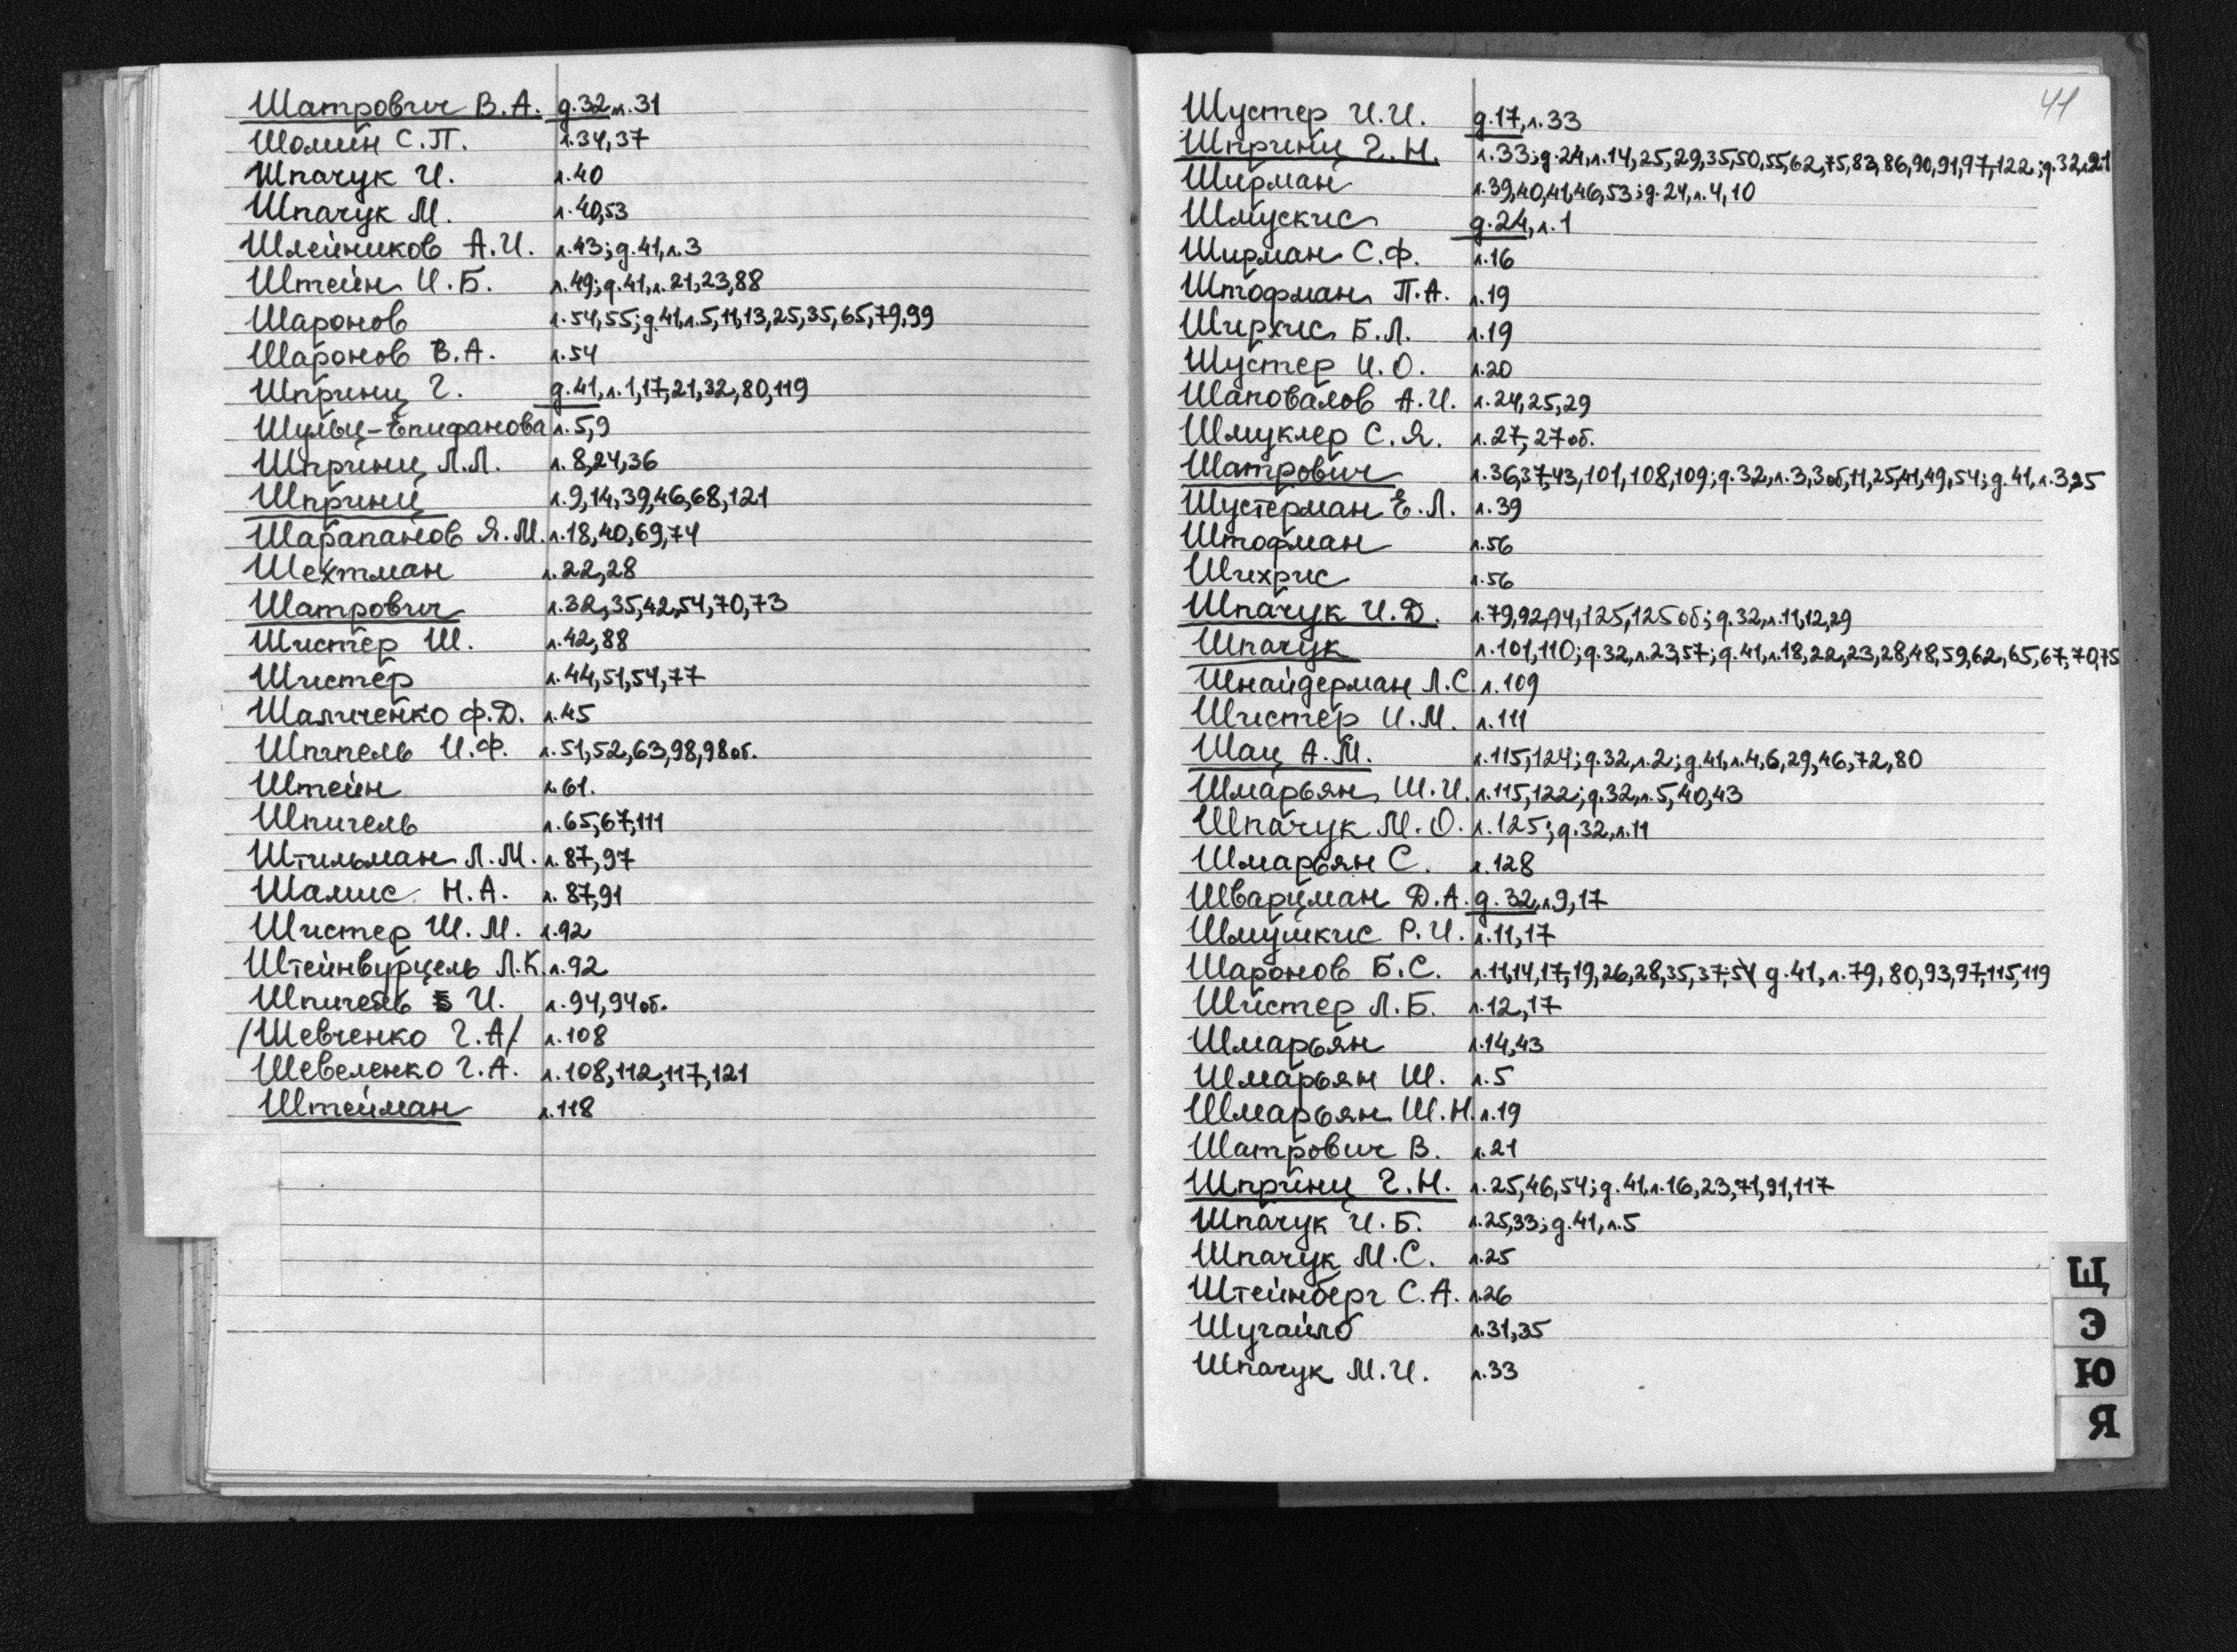 Шатрович В.А. д.32, л.31
Шомин С.П. л.34,37
Шпачук И. л.40
Шпачук М. л.40,53
Шлейников А.И. л.43; д.41, л.3
Штейн И.Б. л.49; д.41, л.21,23,88
Шаронов л.54,55; д.41, л.5,11,13,25,35,65,79,99
Шаронов В.А. л.54
Шпринц Г. д.41, л.1,17,21,32,80,119
Шульц-Епифанова л.5,9
Шпринц Л.Л. л.8,24,36
Шпринц л.9,14,39,46,68,121
Шарапанов Я.М. л.18,40,69,74
Шехтман л.22,28
Шатрович л.32,35,42,54,70,73
Шистер Ш. л.42,88
Шистер л.44,51,54,77
Шаличенко Ф.Д. л.45
Шпигель И.Ф. л.51,52,63,98,98об.
Штейн л.61.
Шпигель л.65,67,111
Штильман Л.М. л.87,97
Шамис Н.А. л.87,91
Шистер Ш.М. л.92
Штейнвурцель Л.К. л.92
Шпигель И. л.94,94об.
/Шевченко Г.А/. л.108
Шевеленко Г.А. л.108,112,117,121
Штейман л.118
41
Шустер И.И. д.17, л.33
Шпринц Г.Н. л.33; д.24, л.14,25,29,35,50,55,62,75,83,86,90,91,97,122; д.32, л.21
Ширман л.39,40,41,46,53; д.24, л.4,10
Шмускис д.24, л.1
Ширман С.Ф. л.16
Штофман П.А. л.19
Ширхис Б.Л. л.19
Шустер И.О. л.20
Шаповалов А.И. л.24,25,29
Шмуклер С.Я. л.27,27об.
Шатрович л.36,37,43,101,108,109; д.32, л.3,3об,11,25,41,49,54; д.41, л.3,25
Шустерман Е.Л. л.39
Штофман л.56
Шихрис л.56
Шпачук И.Д. л.79,92,94,125,125об; д.32, л.11,12,29
Шпачук л.101,110; д.32, л.23,57; д.41, л.18,22,23,28,48,59,62,65,67,70,75
Шнайдерман Л.С. л.109
Шистер И.М. л.111
Шац А.М. л.115,124; д.32, л.2; д.41, л.4,6,29,46,72,80
Шмарьян Ш.И. л.115,122; д.32, л.5,40,43
Шпачук М.О. л.125; д.32, л.11
Шмарьян С. л.128
Шварцман Д.А. д.32, л.9,17
Шмушкис Р.И. л.11,17
Шаронов Б.С. л.11,14,17,19,26,28,35,37,54 д.41, л.79,80,93,97,115,119
Шистер Л.Б. л.12,17
Шмарьян л.14,43
Шмарьян Ш. л.5
Шмарьян Ш.Н. л.19
Шатрович В. л.21
Шпринц Г.Н. л.25,46,54; д.41, л.16,23,71,91,117
Шпачук И.Б. л.25,33; д.41, л.5
Шпачук М.С. л.25
Штейнберг С.А. л.26
Шугайло л.31,35
Шпачук М.И. л.33
Щ
Э
Ю
Я